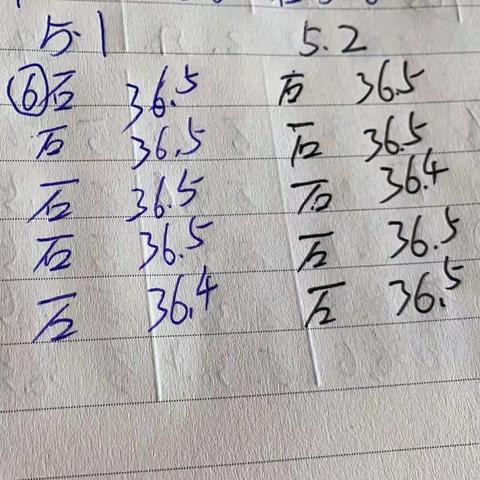 5.1 5.2
⑥石 36.5 石 36.5
石 36.5 石 36.5
石 36.5 石 36.4
石 36.5 石 36.5
石 36.4 石 36.5